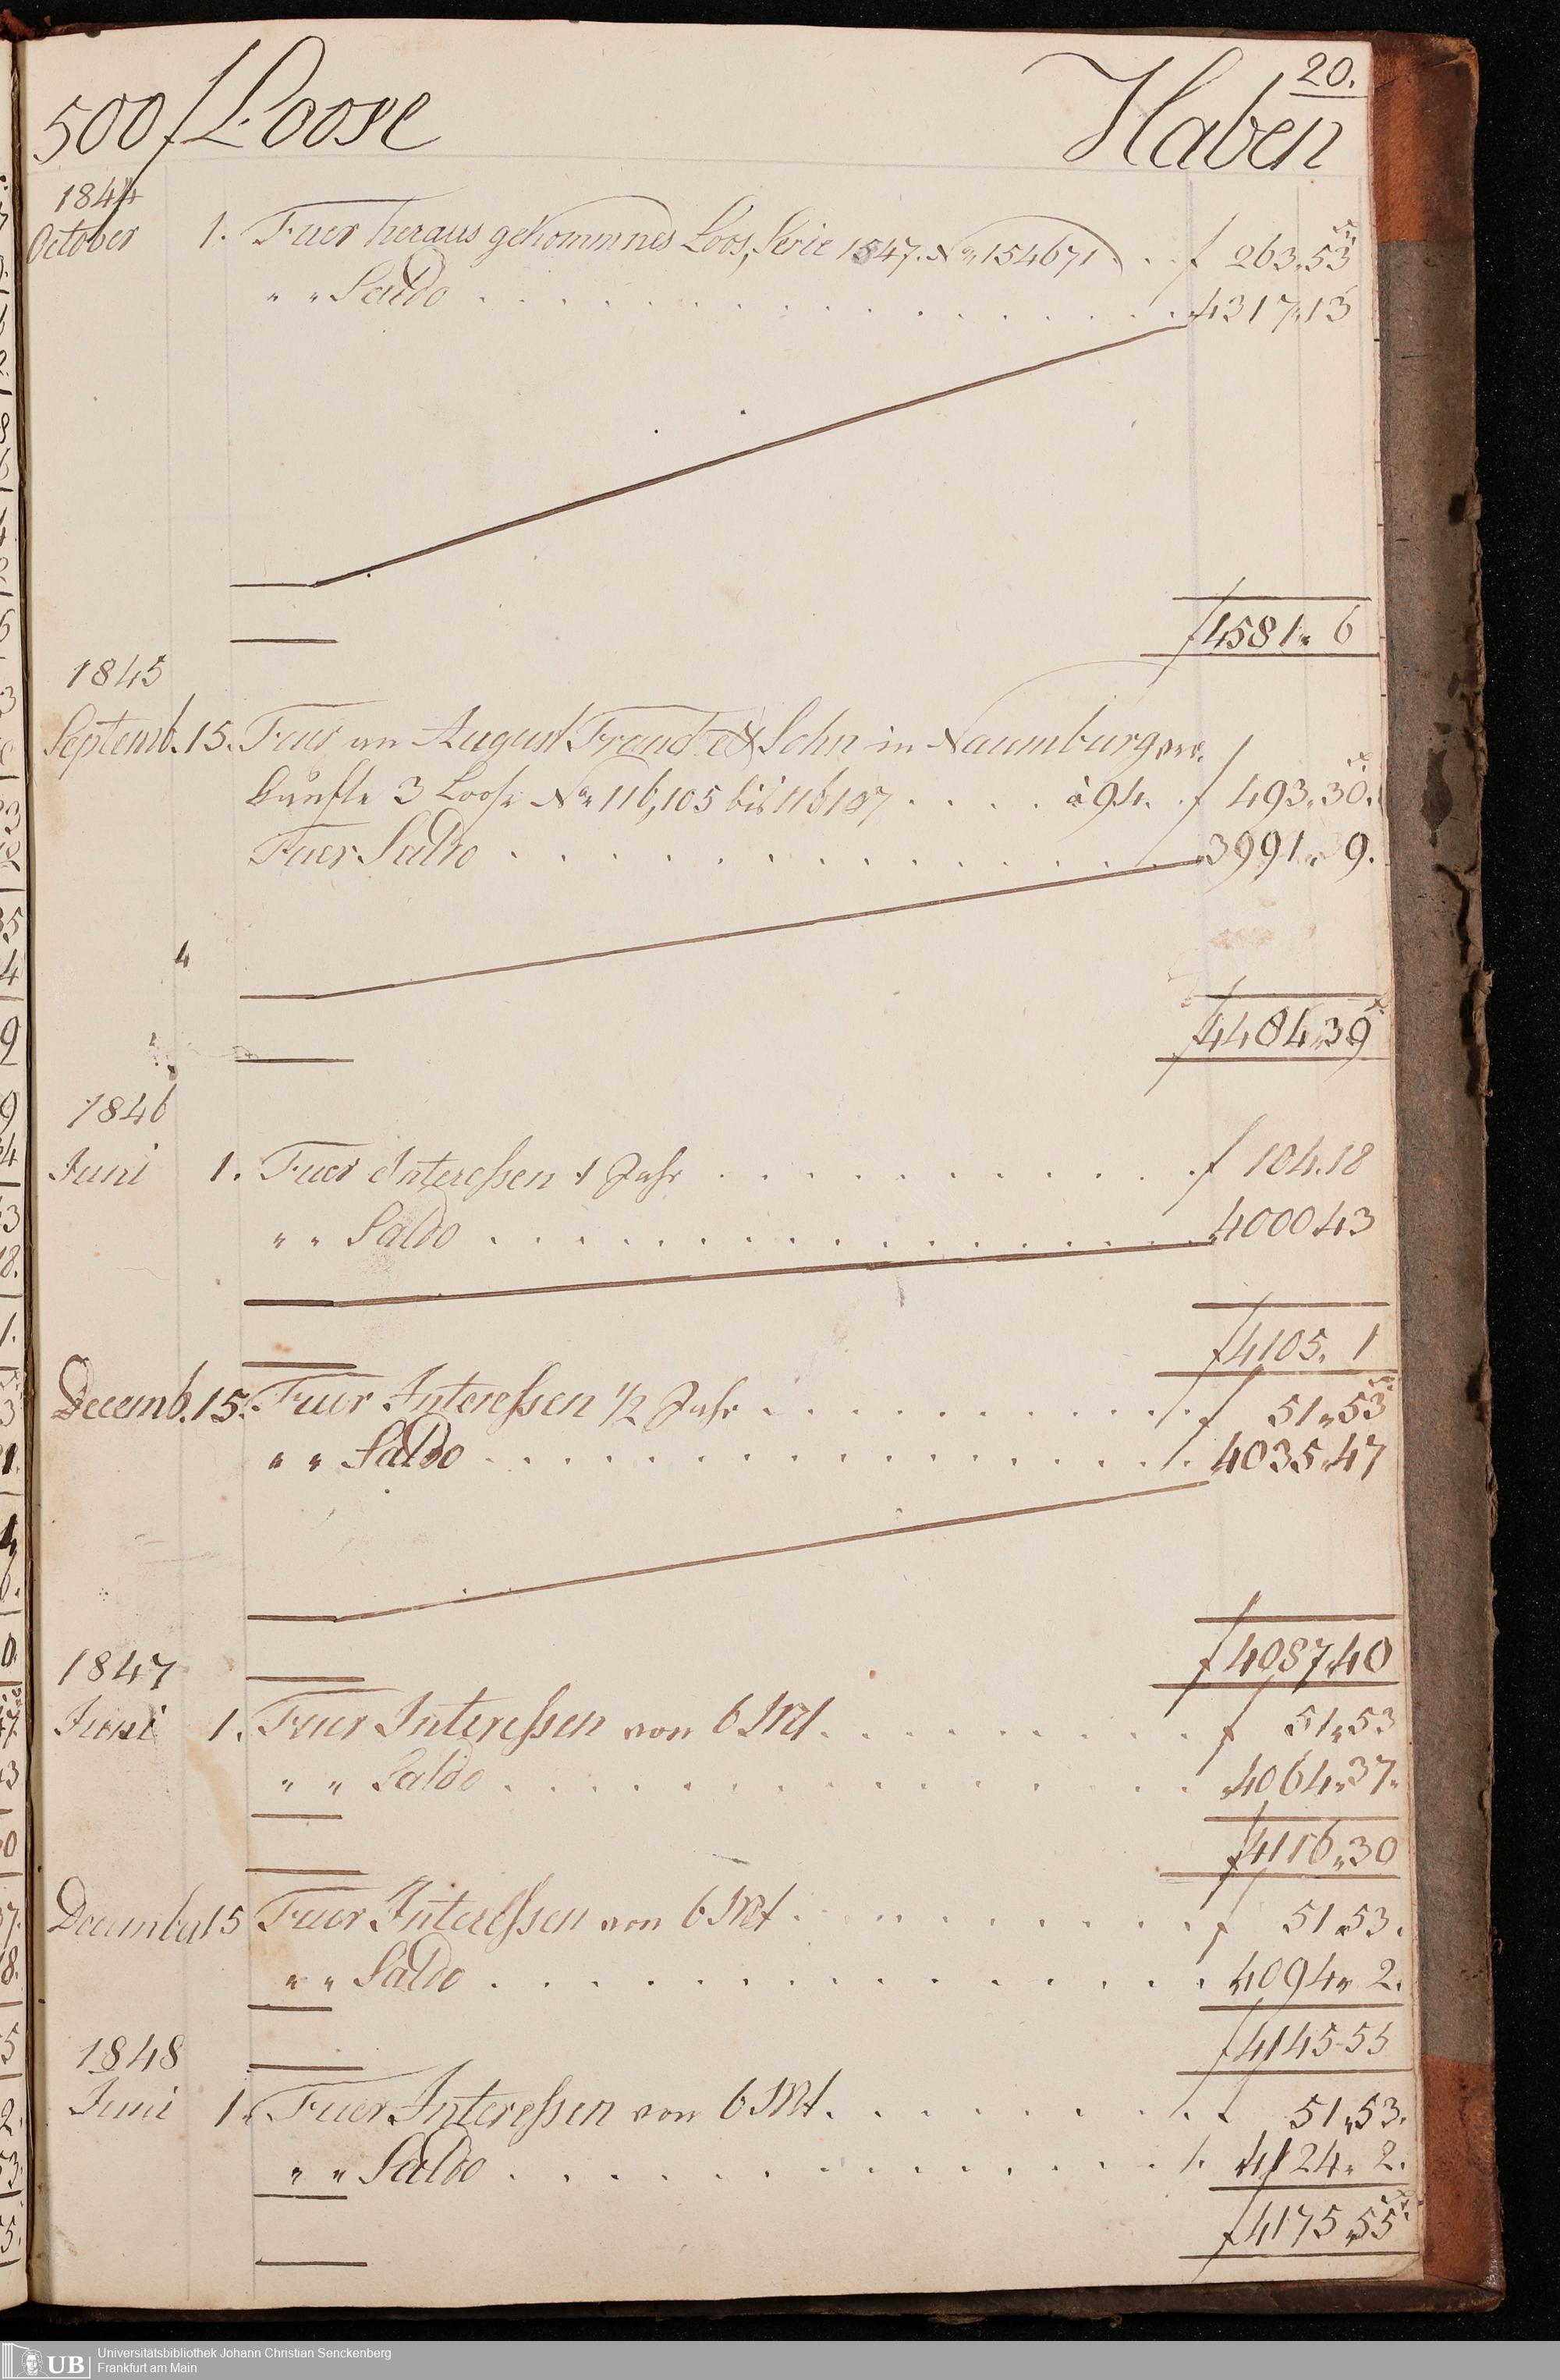 20.
500 f Loose Haben
1844
October 1. Fuer heraus gekommnes Loos, Serie 1547. No 154671 . . f 263.53
" " Saldo . . . 4317.13
f 4581. 6
1845
Septemb. 15. Fuer an August Sohn in Naumburg ver.
kaufte 3 Loose No 116,105 bis 116107 . . . . à 94. f 493.30.
Fuer Saldo . . . 3991. 9.
f 4484.39
1846
Juni 1. Fuer Interessen 1 Jahr . . . f 104.18
" " Saldo . . . 4000 43
f 4105. 1
Decemb. 15. Fuer Interessen 1/2 Jahr . . . f 51.53
" " Saldo . . . 4035.47
f 4087.40
1847
Juni 1. Fuer Interessen von 6 Mt. . . . f 51.53
" " Saldo . . . 4064.37.
f 4116.30
December 15 Fuer Interessen von 6 Mt . . . f 51.53.
" " Saldo . . . 4094. 2.
f 4145.55
1848
Juni 1. Fuer Interessen von 6 Mt. . . . f 51.53.
" " Saldo . . . 4124. 2.
f 4175.55
UB Universitätsbibliothek Johann Christian Senckenberg
Frankfurt am Main